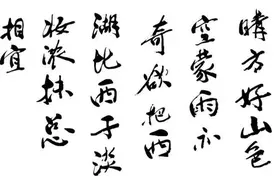 晴方好山色
空蒙雨亦
奇欲把西
湖比西子淡
妆浓抹总
相宜